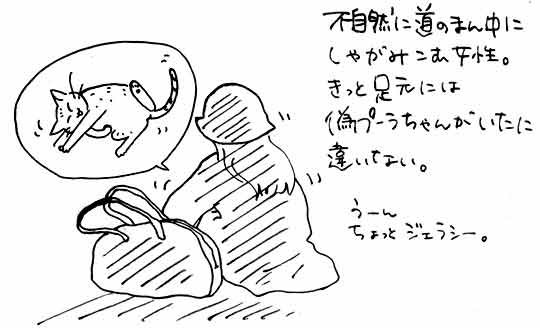 不自然に道のまん中に
しゃがみこむ女性。
きっと足元には
偽プーラちゃんがいたに
違いない。
うーん
ちょっとジェラシー。